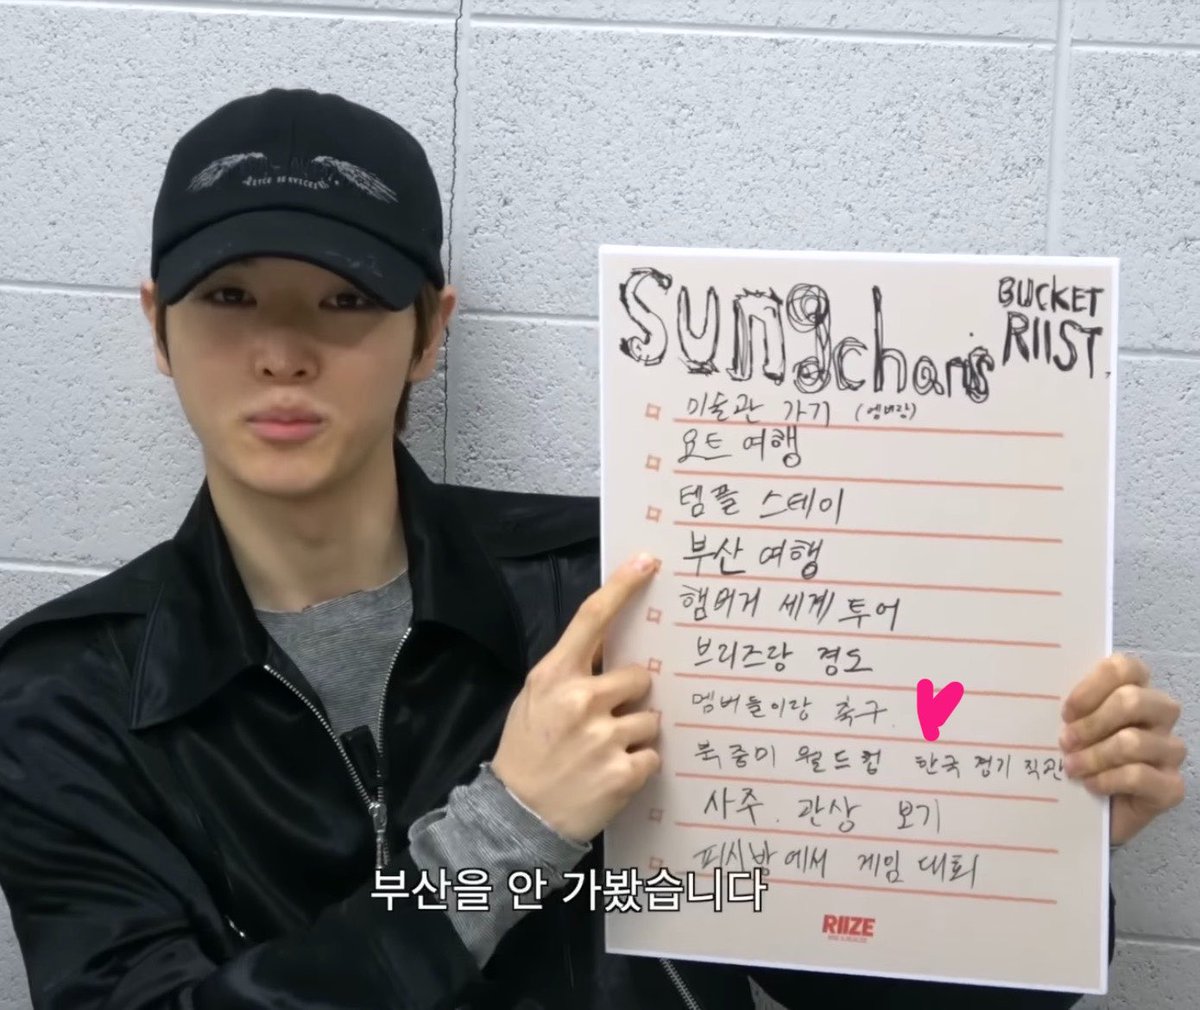 Sungchan's
BUCKET
RIIST.
미술관 가기 (멤버랑)
요트 여행
템플 스테이
부산 여행
햄버거 세계 투어
브리즈랑 경도
멤버들이랑 축구.
북중미 월드컵 한국 경기 직관
사주. 관상 보기
피시방에서 게임 대회
부산을 안 가봤습니다
RIIZE